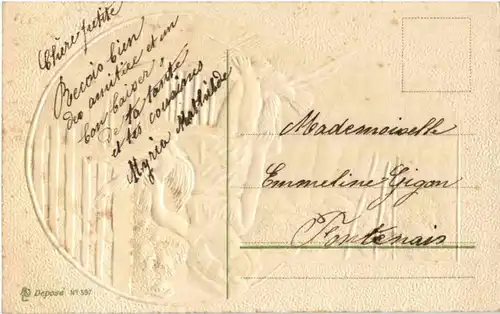 Chère petite
Recois bien
des amitiée et un
bon baiser
De ta tante
et tes cousines
Myria Mathilde
Mademoiselle
Emmeline Gigon
Fontenais
Déposé No 597